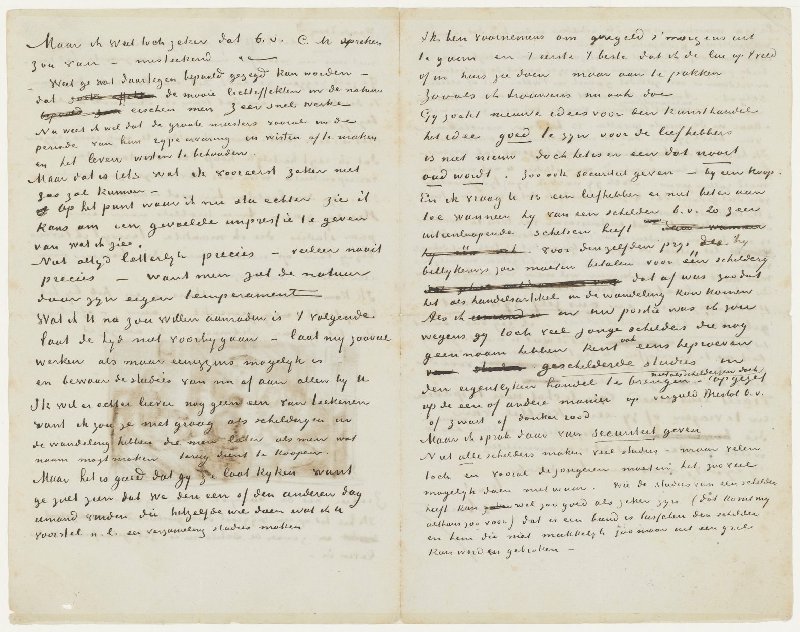 Maar ik weet toch zeker dat b.v. C.M. spreken
zou van – miskend
– Wat ge wat daartegen bepaald gezegd kan worden –
dat de mooie lichteffekten in de natuur
eischen men zeer snel werke
Nu weet ik wel dat de groote meesters vooral in de
periode van hun rijpe ervaring en wisten af te maken
en het leven wisten te behouden.
Maar dat is iets wat ik vooreerst zeker niet
zoo zal kunnen –
Op het punt waar ik nu sta echter zie ik
kans om een gevoelde impressie te geven
van wat ik zie.
Niet altijd letterlijk precies – veeleer nooit
precies – want men ziet de natuur
door zijn eigen temperament
Wat ik U nu zou willen aanraden is 't volgende
laat de tijd niet voorbij gaan – laat mij zooveel
werken als maar eenigzins mogelijk is
en bewaar de studies van nu af aan allen bij U
Ik wil er echter liever nog geen een van teekenen
want ik zou ze niet graag als schilderijen in
de wandeling hebben die men later als men wat
naam mogt maken terug dient te koopen.
Maar het is goed dat gij ze laat kijken want
ge zult zien dat we den een of den anderen dag
iemand vinden die hetzelfde wil doen wat ik U
voorstel n.l. een verzameling studies maken
Ik ben voornemens om geregeld s'morgens uit
te gaan en 't eerste 't beste dat ik de lui op 't veld
of in huis zie doen maar aan te pakken
zooals ik trouwens nu ook doe
Gij zoekt nieuwe idees voor den kunsthandel
het idee goed te zijn voor de liefhebbers
is niet nieuw doch het is er een dat nooit
oud wordt. Zoo ook securiteit geven – bij een koop.
En ik vraag U is een liefhebber er niet beter aan
toe wanneer hij van een schilder b.v. 20 zeer
uiteenloopende schetsen heeft
voor denzelfden prijs die hij
billijkerwijs zou moeten betalen voor één schilderij
dat af was zoodat
het als handelsartikel in de wandeling kon komen
Als ik in uw positie was ik zou
wegens gij toch veel jonge schilders die nog
geen naam hebben kent ook eens beproeven
geschilderde studies in
den eigentlijken handel te brengen – niet als schilderijen doch opgezet
op de een of andere manier op verguld Bristol b.v.
of zwart of donker rood
Maar ik sprak daar van securiteit geven
Niet alle schilders maken veel studies – maar velen
toch en vooral de jongeren moeten het zooveel
mogelijk doen niet waar. Wie de studies van een schilder
heeft kan wel zoo goed als zeker zijn (dat komt mij
althans zoo voor) dat er een band is tusschen den schilder
en hem die niet makkelijk zoo maar uit een gril
kan worden gebroken –